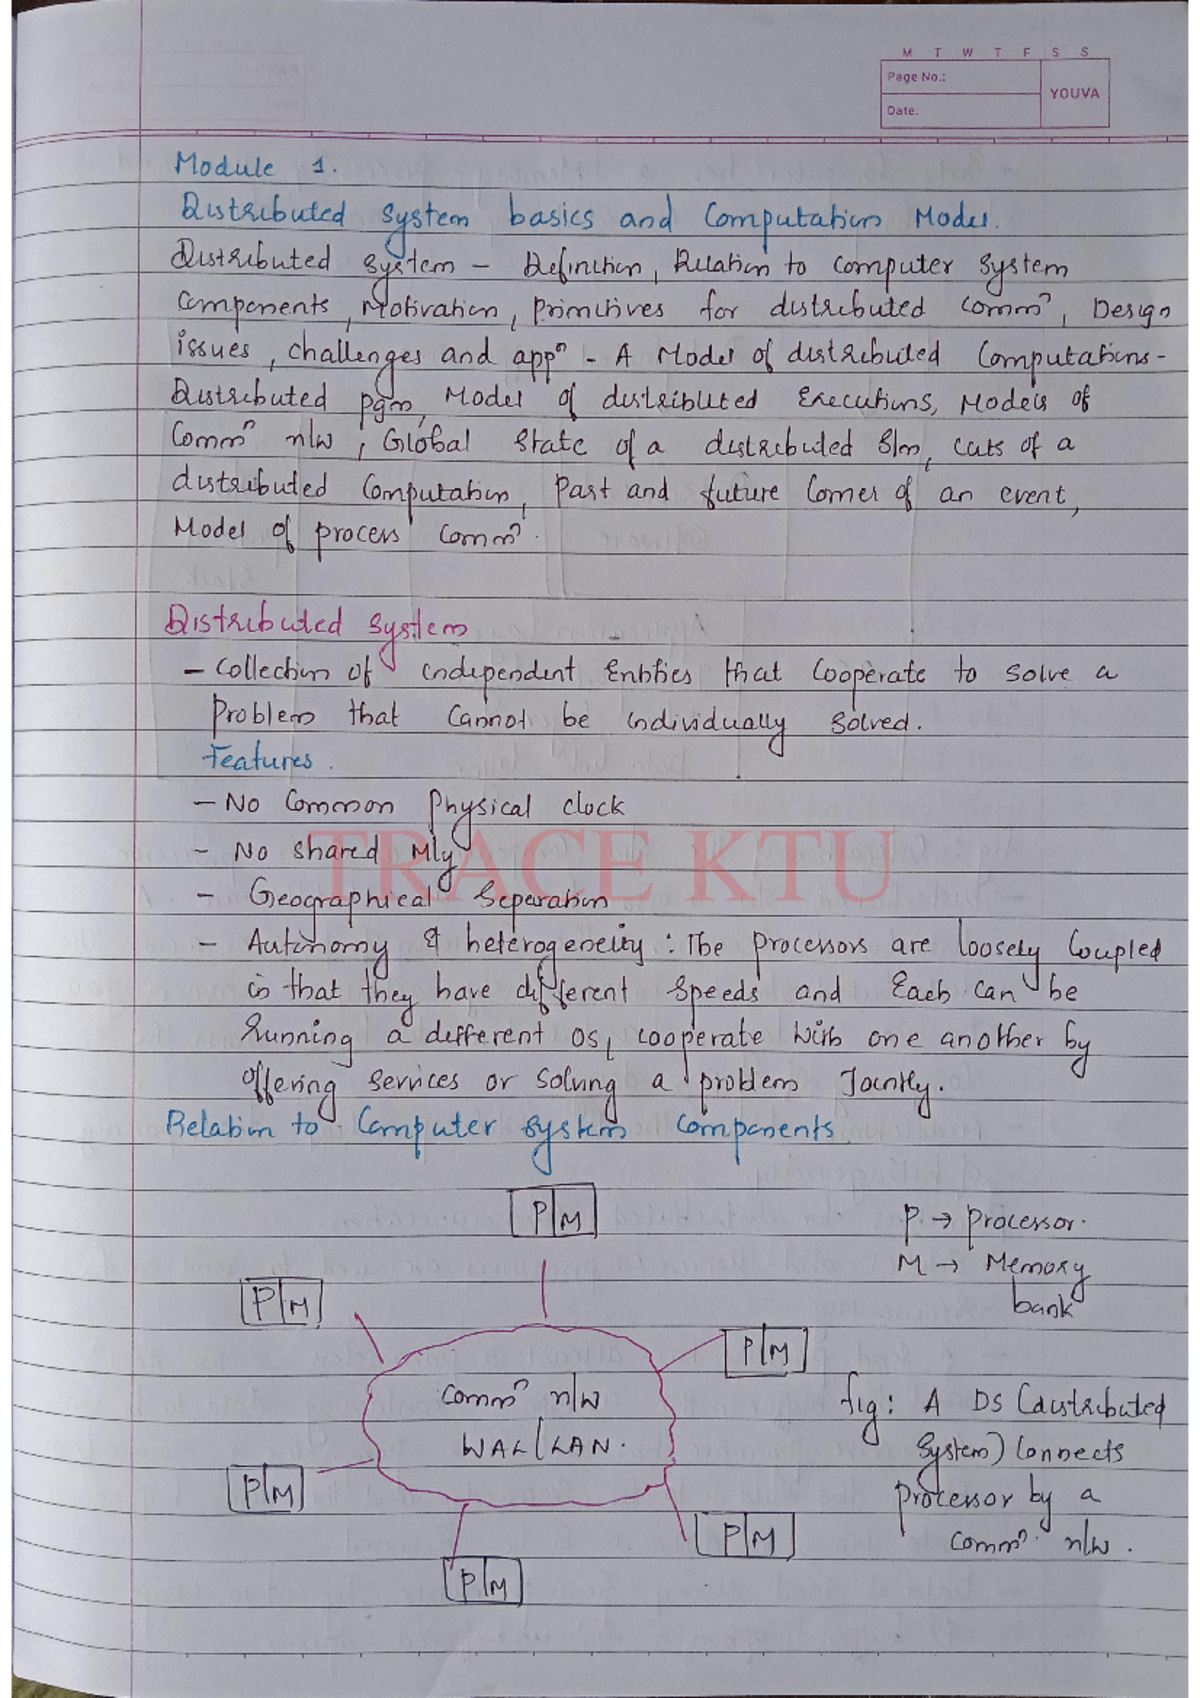 M T W T F S S
Page No.:
YOUVA
Date:
Module 1.
Distributed System basics and Computation Model.
Distributed System – Definition, Relation to computer system
components, Motivation, Primitives for distributed commⁿ, Design
issues, challenges and appⁿ - A Model of distributed Computations-
Distributed pgm, Model of distributed Executions, Models of
Commⁿ n/w, Global State of a distributed S/m, cuts of a
distributed Computation, Past and future Cones of an event,
Model of process Commⁿ.
Distributed System
- Collection of independent Entities that Cooperate to solve a
Problem that cannot be individually solved.
Features.
- No Common Physical clock
- No shared Mly
TRACE KTU
- Geographical Separation
- Autonomy & heterogeneity: The processors are loosely Coupled
in that they have different Speeds and Each can be
Running a different OS, cooperate with one another by
offering Services or Solving a problem Jointly.
Relation to Computer System Components
P|M
P → processor.
M → Memory
bank
P|M
P|M
Commⁿ n/w
WAL/LAN.
fig: A DS (distributed
System) Connects
Processor by a
Commⁿ n/w.
P|M
P|M
P|M